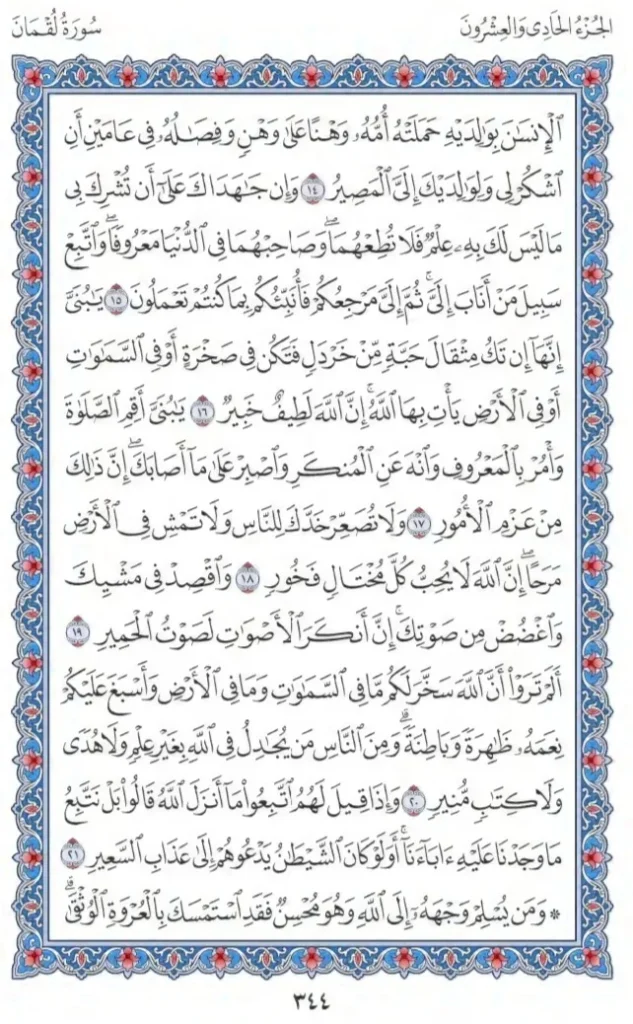 الجُزْءُ الحَادِي وَالعِشْرُونَ
سُورَةُ لُقْمَانَ
ٱلْإِنسَٰنَ بِوَٰلِدَيْهِ حَمَلَتْهُ أُمُّهُۥ وَهْنًا عَلَىٰ وَهْنٍ وَفِصَٰلُهُۥ فِى عَامَيْنِ أَنِ
ٱشْكُرْ لِى وَلِوَٰلِدَيْكَ إِلَىَّ ٱلْمَصِيرُ ١٤ وَإِن جَٰهَدَاكَ عَلَىٰٓ أَن تُشْرِكَ بِى
مَا لَيْسَ لَكَ بِهِۦ عِلْمٌ فَلَا تُطِعْهُمَاۖ وَصَاحِبْهُمَا فِى ٱلدُّنْيَا مَعْرُوفًاۖ وَٱتَّبِعْ
سَبِيلَ مَنْ أَنَابَ إِلَىَّۚ ثُمَّ إِلَىَّ مَرْجِعُكُمْ فَأُنَبِّئُكُم بِمَا كُنتُمْ تَعْمَلُونَ ١٥ يَٰبُنَىَّ
إِنَّهَآ إِن تَكُ مِثْقَالَ حَبَّةٍ مِّنْ خَرْدَلٍ فَتَكُن فِى صَخْرَةٍ أَوْ فِى ٱلسَّمَٰوَٰتِ
أَوْ فِى ٱلْأَرْضِ يَأْتِ بِهَا ٱللَّهُۚ إِنَّ ٱللَّهَ لَطِيفٌ خَبِيرٌ ١٦ يَٰبُنَىَّ أَقِمِ ٱلصَّلَوٰةَ
وَأْمُرْ بِٱلْمَعْرُوفِ وَٱنْهَ عَنِ ٱلْمُنكَرِ وَٱصْبِرْ عَلَىٰ مَآ أَصَابَكَۖ إِنَّ ذَٰلِكَ
مِنْ عَزْمِ ٱلْأُمُورِ ١٧ وَلَا تُصَعِّرْ خَدَّكَ لِلنَّاسِ وَلَا تَمْشِ فِى ٱلْأَرْضِ
مَرَحًاۖ إِنَّ ٱللَّهَ لَا يُحِبُّ كُلَّ مُخْتَالٍ فَخُورٍ ١٨ وَٱقْصِدْ فِى مَشْيِكَ
وَٱغْضُضْ مِن صَوْتِكَۚ إِنَّ أَنكَرَ ٱلْأَصْوَٰتِ لَصَوْتُ ٱلْحَمِيرِ ١٩
أَلَمْ تَرَوْا۟ أَنَّ ٱللَّهَ سَخَّرَ لَكُم مَّا فِى ٱلسَّمَٰوَٰتِ وَمَا فِى ٱلْأَرْضِ وَأَسْبَغَ عَلَيْكُمْ
نِعَمَهُۥ ظَٰهِرَةً وَبَاطِنَةًۗ وَمِنَ ٱلنَّاسِ مَن يُجَٰدِلُ فِى ٱللَّهِ بِغَيْرِ عِلْمٍ وَلَا هُدًى
وَلَا كِتَٰبٍ مُّنِيرٍ ٢٠ وَإِذَا قِيلَ لَهُمُ ٱتَّبِعُوا۟ مَآ أَنزَلَ ٱللَّهُ قَالُوا۟ بَلْ نَتَّبِعُ
مَا وَجَدْنَا عَلَيْهِ ءَابَآءَنَآۚ أَوَلَوْ كَانَ ٱلشَّيْطَٰنُ يَدْعُوهُمْ إِلَىٰ عَذَابِ ٱلسَّعِيرِ ٢١
۞ وَمَن يُسْلِمْ وَجْهَهُۥٓ إِلَى ٱللَّهِ وَهُوَ مُحْسِنٌ فَقَدِ ٱسْتَمْسَكَ بِٱلْعُرْوَةِ ٱلْوُثْقَىٰۗ
٣٤٤